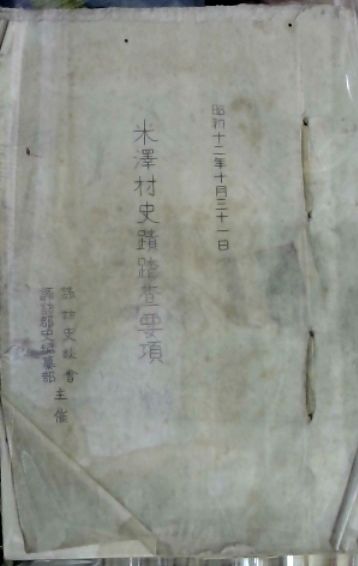 昭和十二年十月三十一日
米澤村史蹟踏査要項
諏訪史談會
諏訪郡史編纂部
主催